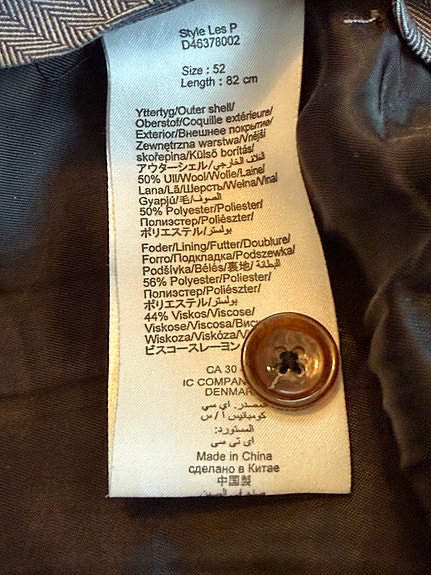 Style Les P
D46378002
Size : 52
Length : 82 cm
Yttertyg/Outer shell/
Oberstof/Coquille extérieure/
Exterior/Внешнее покрытие/
Zewnętrzna warstwa/Vnější
skořepina/Külső borítás/
アウターシェル/الغلاف الخارجي
50% Ull/Wool/Wolle/Laine/
Lana/Lã/Шерсть/Wełna/Vlna/
Gyapjú/毛/الصوف
50% Polyester/Poliester/
Полиэстер/Poliészter/
ポリエステル/بولستر
Foder/Lining/Futter/Doublure/
Forro/Подкладка/Podszewka/
Podšívka/Bélés/裏地/البطانة
56% Polyester/Poliester/
Полиэстер/Poliészter/
ポリエステル/بولستر
44% Viskos/Viscose/
Viskose/Viscosa/
Wiskoza/Viskóza/
ビスコースレーヨン
CA 30
IC
DENMAR
المصدر: اي سي
كومبانيس ا / س
المستورد:
اي تي سي
Made in China
сделано в Китае
中国製